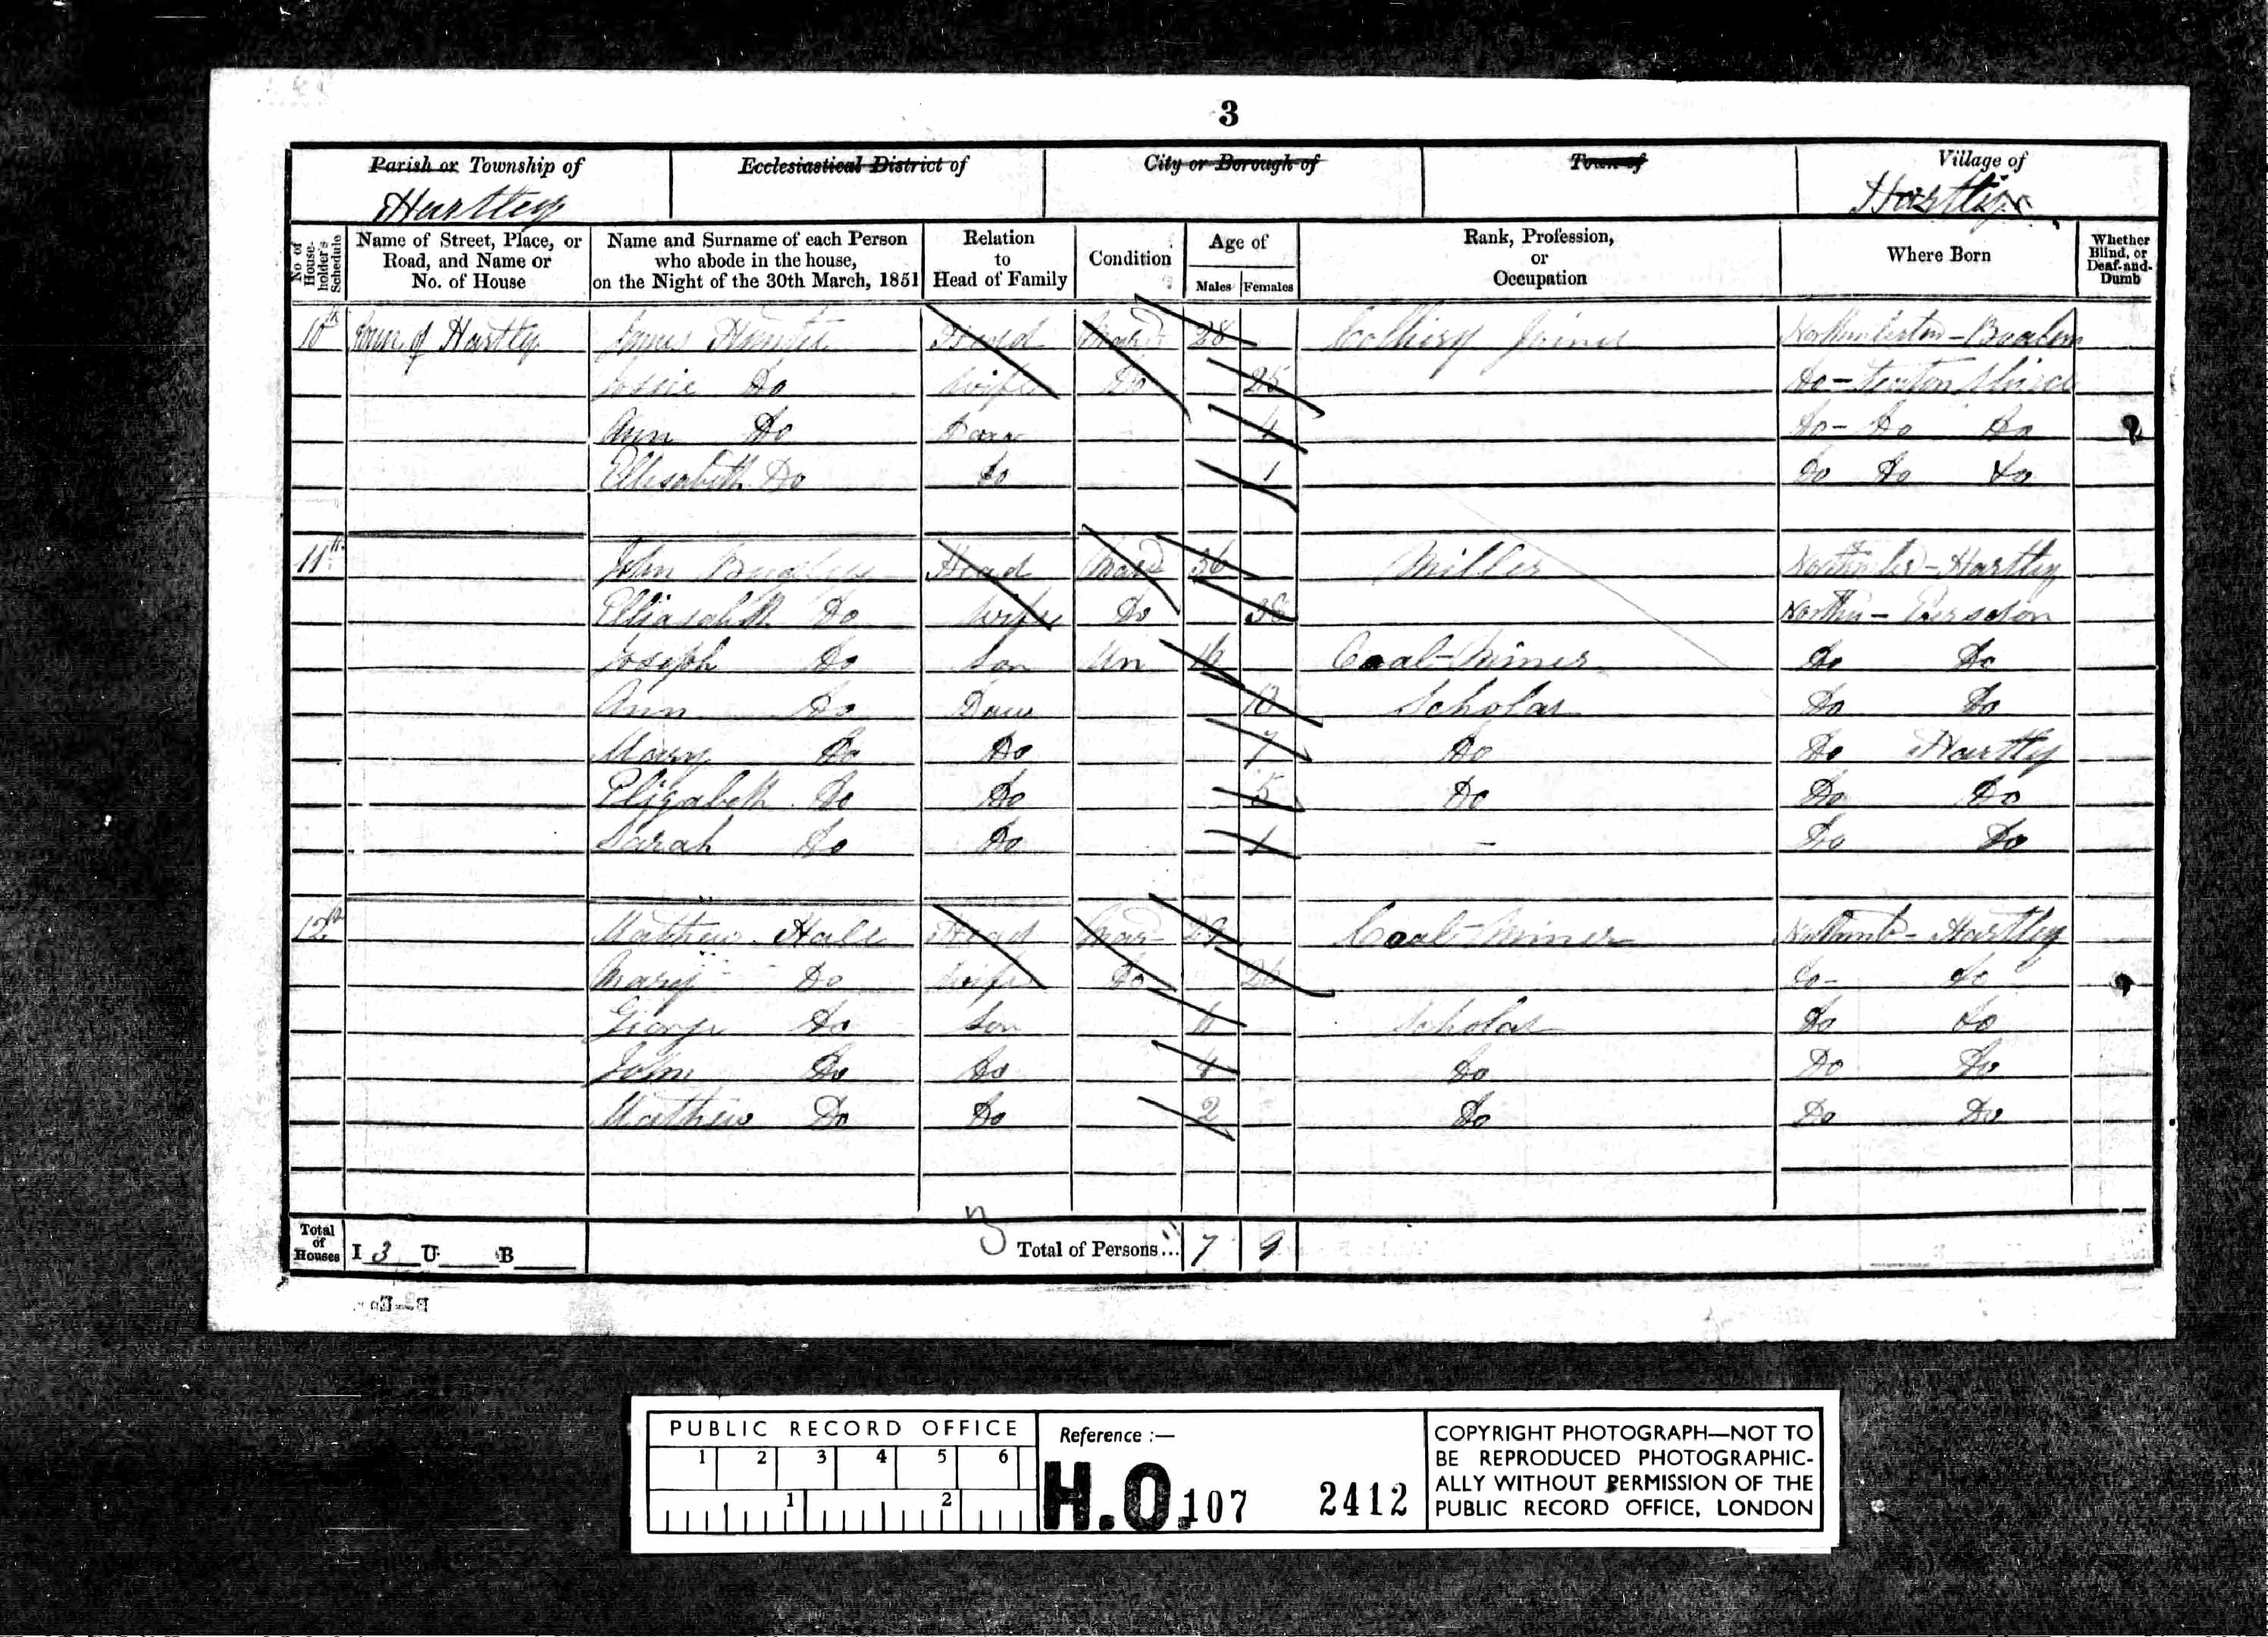 3
Parish or Township of Ecclesiastical District of City or Borough of Town of Village of
Hartley Hartley
No of House-holder's Schedule Name of Street, Place, or Road, and Name or No. of House Name and Surname of each Person who abode in the house, on the Night of the 30th March, 1851 Relation to Head of Family Condition Age of Males Females Rank, Profession, or Occupation Where Born Whether Blind, or Deaf-and-Dumb
10th of Hartley James Hunter Head Mard 28 Colliery Joiner
Do Wife Do 25 Do-
Ann Do Daur 4 Do- Do Do
Ellisabeth Do Do 1 Do Do Do
11th John Head Mard 36 Miller Hartley
Do Wife Do 38
Joseph Do Son Un 16 Coal-Miner Do Do
Ann Do Daur 10 Scholar Do Do
Mary Do Do 7 Do Do Hartley
Elizabeth Do Do 5 Do Do Do
Sarah Do Do 1 - Do Do
12th Matthew Hall Head Mar- 29 Coal-Miner Northumb- Hartley
Mary Do Wife Do 26 Do- Do
George Do Son Scholar Do Do
John Do Do 4 Do Do Do
Mathew Do Do 2 Do Do Do
Total of Houses I 3 U B Total of Persons... 7 9
PUBLIC RECORD OFFICE
1 2 3 4 5 6
1 2
Reference :—
H.O. 107 2412
COPYRIGHT PHOTOGRAPH—NOT TO
BE REPRODUCED PHOTOGRAPHIC-
ALLY WITHOUT PERMISSION OF THE
PUBLIC RECORD OFFICE, LONDON